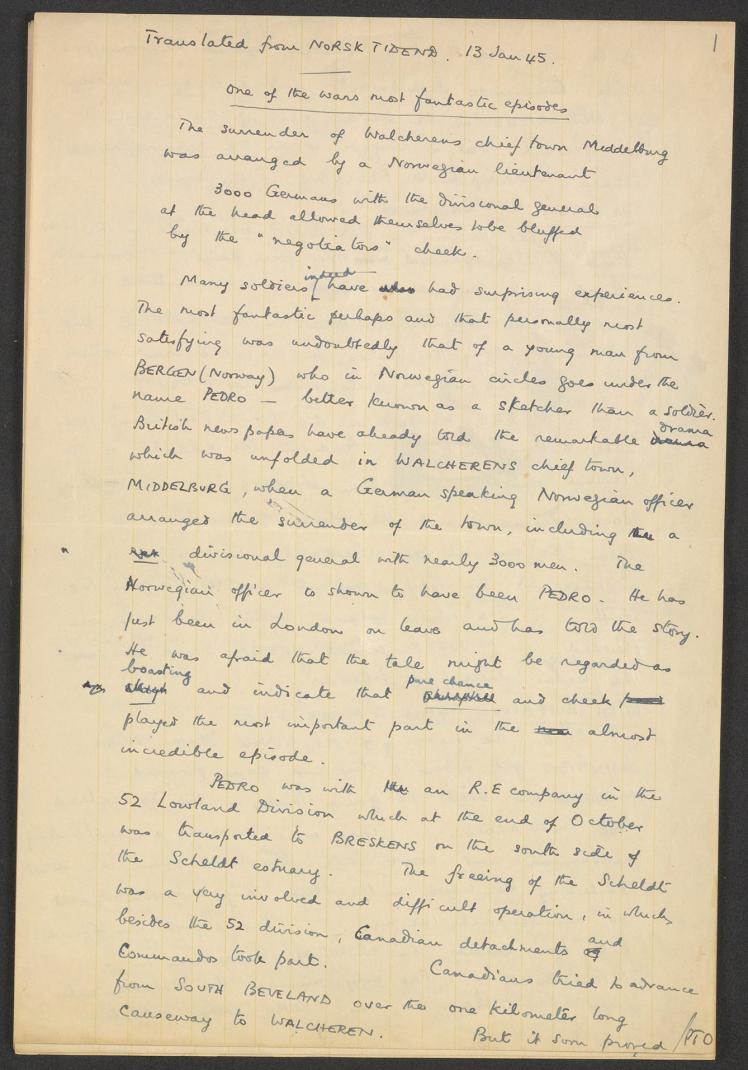 1
Translated from NORSK TIDEND. 13 Jan 45.
One of the wars most fantastic episodes
The surrender of Walcherens chief town Middelburg
was arranged by a Norwegian lieutenant
3000 Germans with the divisional general
at the head allowed themselves to be bluffed
by the "negotiators" cheek.
indeed
Many soldiers have also had surprising experiences.
The most fantastic perhaps and that personally most
satisfying was undoubtedly that of a young man from
BERGEN (Norway) who in Norwegian circles goes under the
name PEDRO — better known as a sketcher than a soldier.
drama
British newspapers have already told the remarkable
which was unfolded in WALCHERENS chief town,
MIDDELBURG, when a German speaking Norwegian officer
arranged the surrender of the town, including the a
divisional general with nearly 3000 men. The
Norwegian officer is shown to have been PEDRO. He has
just been in London on leave and has told the story.
He was afraid that the tale might be regarded as
boasting
pure chance
and indicate that and cheek
played the most important part in the almost
incredible episode.
PEDRO was with the an R.E company in the
52 Lowland Division which at the end of October
was transported to BRESKENS on the south side of
the Scheldt estuary. The freeing of the Scheldt
was a very involved and difficult operation, in which
besides the 52 division, Canadian detachments and
Commandos took part. Canadians tried to advance
from SOUTH BEVELAND over the one kilometer long
causeway to WALCHEREN. But it soon proved /PTO